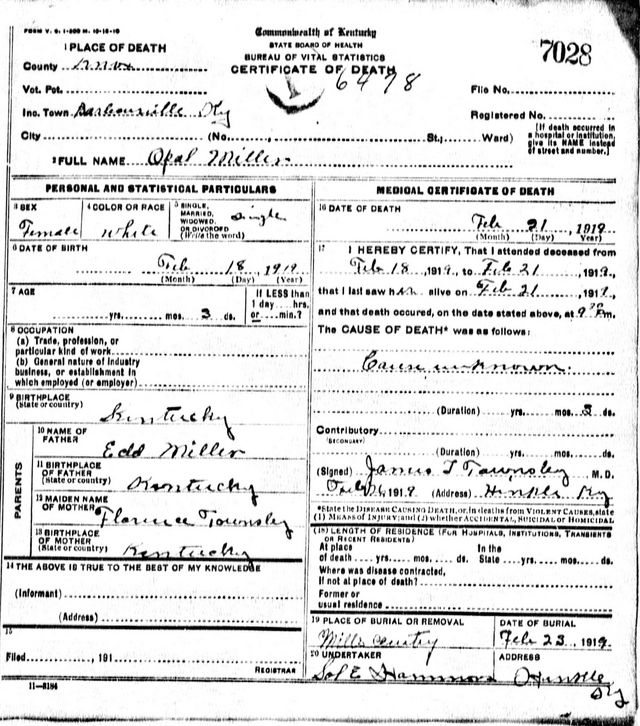 FORM V. S. 1-500 M. 10-16-16
Commonwealth of Kentucky
STATE BOARD OF HEALTH
BUREAU OF VITAL STATISTICS
CERTIFICATE OF DEATH
7028
6478
1 PLACE OF DEATH
County Knox
Vot. Pct.
Inc. Town Barbourville Ky
City (No. St.; Ward)
File No.
Registered No.
[If death occurred in a hospital or institution, give its NAME instead of street and number.]
2 FULL NAME Opal Miller
PERSONAL AND STATISTICAL PARTICULARS
3 SEX
Female
4 COLOR OR RACE
White
5 SINGLE, MARRIED, WIDOWED, OR DIVORCED (Write the word)
Single
6 DATE OF BIRTH
Feb 18, 1919
(Month) (Day) (Year)
7 AGE
yrs. mos. 3 ds.
If LESS than 1 day, hrs. or min.?
8 OCCUPATION
(a) Trade, profession, or
particular kind of work
(b) General nature of industry
business, or establishment in
which employed (or employer)
9 BIRTHPLACE
(State or country)
Kentucky
PARENTS
10 NAME OF FATHER
Edd Miller
11 BIRTHPLACE OF FATHER
(State or country)
Kentucky
12 MAIDEN NAME OF MOTHER
Florence Townsley
13 BIRTHPLACE OF MOTHER
(State or country)
Kentucky
14 THE ABOVE IS TRUE TO THE BEST OF MY KNOWLEDGE
(Informant)
(Address)
15
Filed , 191
REGISTRAR
11-3184
MEDICAL CERTIFICATE OF DEATH
16 DATE OF DEATH
Feb 21, 1919
(Month) (Day) (Year)
17 I HEREBY CERTIFY, That I attended deceased from
Feb 18, 1919, to Feb 21, 1919,
that I last saw her alive on Feb 21, 1919,
and that death occured, on the date stated above, at 9 30 Pm.
The CAUSE OF DEATH* was as follows:
Cause unknown.
(Duration) yrs. mos. 3 ds.
Contributory
(SECONDARY)
(Duration) yrs. mos. ds.
(Signed) James T Townsley M.D.
, 1919 (Address) Hinkle Ky
*State the DISEASE CAUSING DEATH, or, in deaths from VIOLENT CAUSES, state
(1) MEANS OF INJURY; and (2) whether ACCIDENTAL, SUICIDAL or HOMICIDAL
(18) LENGTH OF RESIDENCE (FOR HOSPITALS, INSTITUTIONS, TRANSIENTS
OR RECENT RESIDENTS)
At place of death yrs. mos. ds. In the State yrs. mos. ds.
Where was disease contracted,
If not at place of death?
Former or
usual residence
19 PLACE OF BURIAL OR REMOVAL
DATE OF BURIAL
Feb 23, 1919
20 UNDERTAKER
Sol E Hammons
ADDRESS
Hinkle
Ky